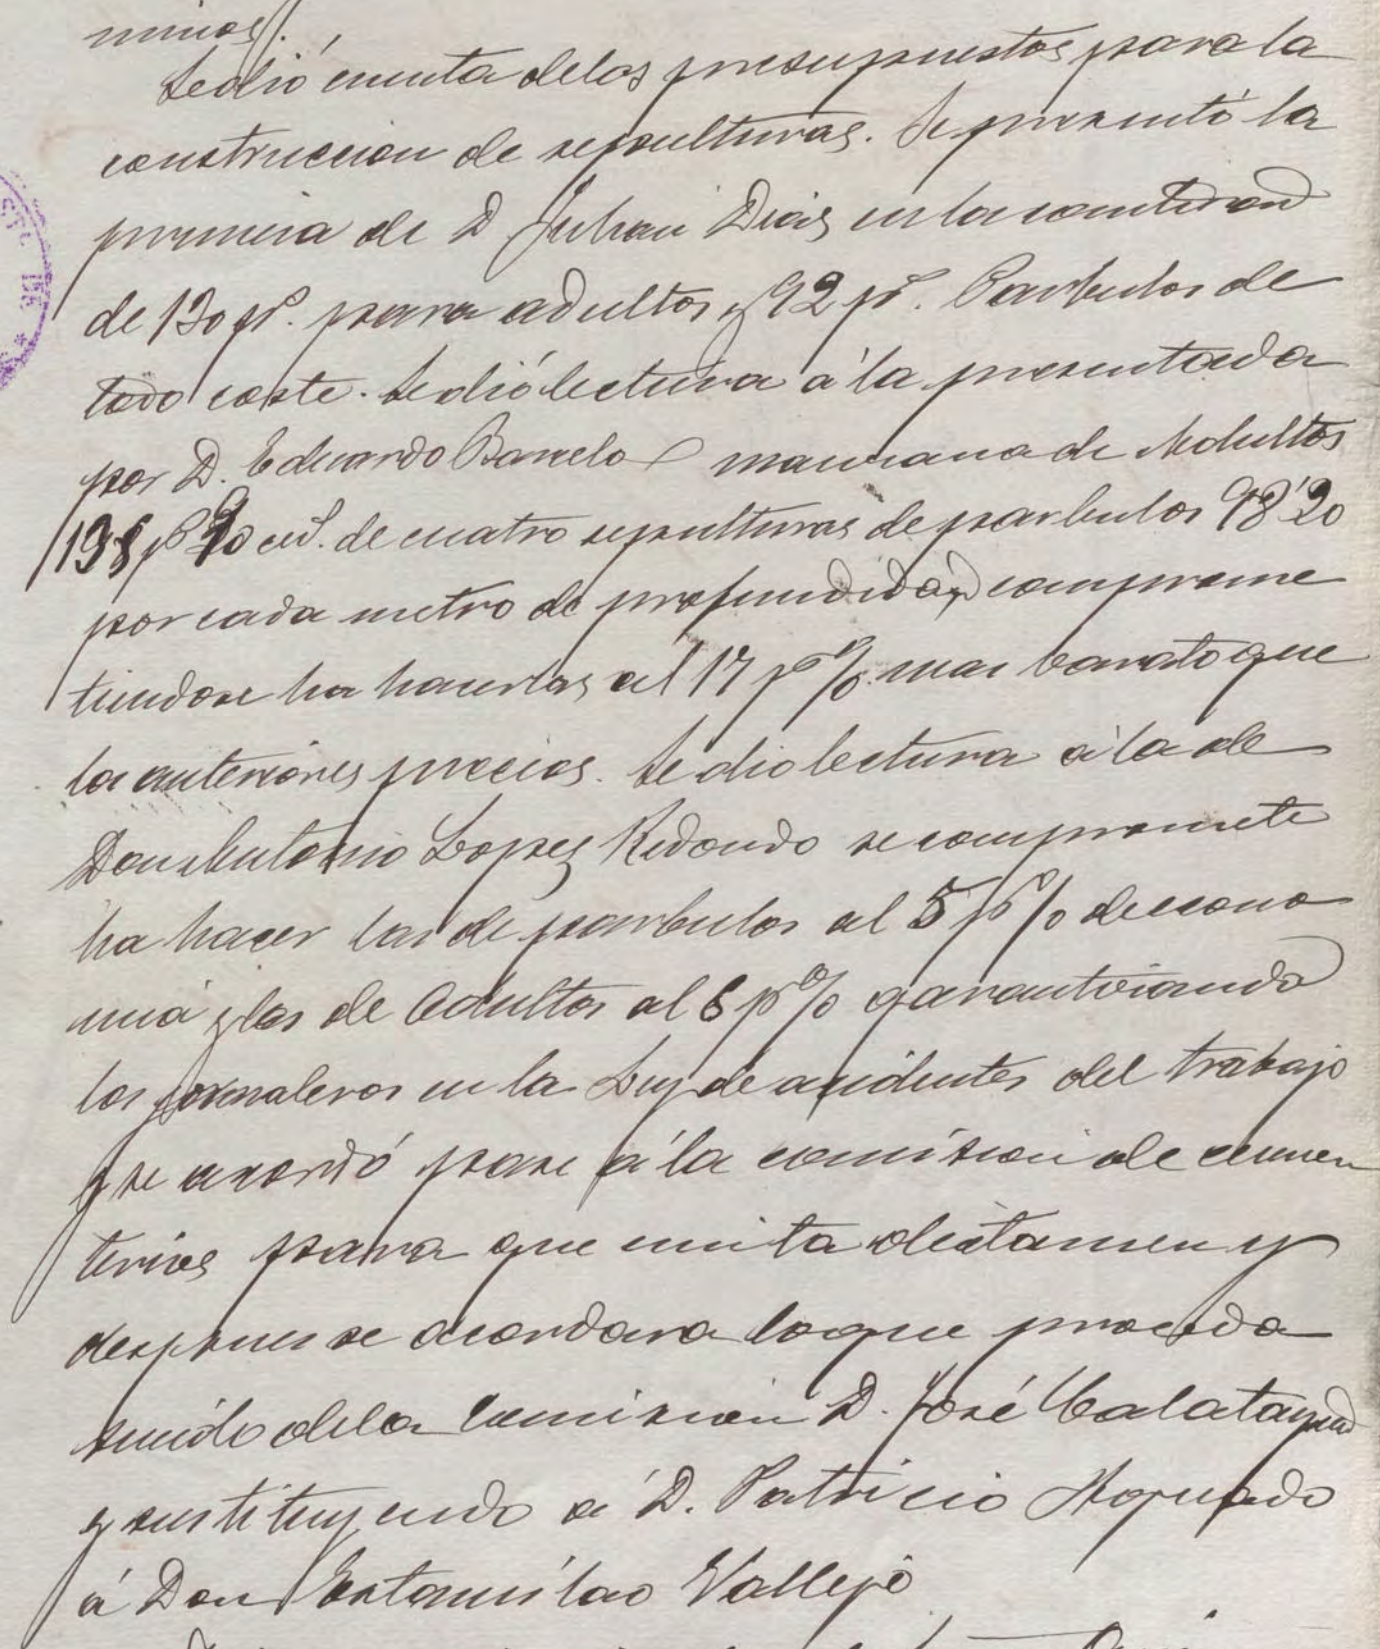 minos.
Se dió cuenta delos presupuestos para la
construccion de sepulturas. Se presentó la
primera de D Julian Diaz en la cantidad
de 130 pts. para adultos y 92 pts. Parbulos de
todo coste. Se dió lectura á la presentada
por D. Eduardo Barcelo de Adultos
de cuatro sepulturas de parbulos 98'20
por cada metro de profundidad comprome
tiendose ha hacerlas al 17 p% mas barato que
la anteriores precios. Se dio lectura á la de
Don Antonio Lopez Redondo se compromete
ha hacer las de parbulos al 5 p% de econo
mia y las de Adultos al 6 p% garantizando
los jornaleros en la Ley de acidentes del trabajo
y se acordó pase á la comision de cemen
terios para que emita dictamen y
despues se acordara loque proceda
siendo dela Comision D. José Calatayud
y sustituyendo a D. Patricio Aguado
á Don Estanislao Vallejo